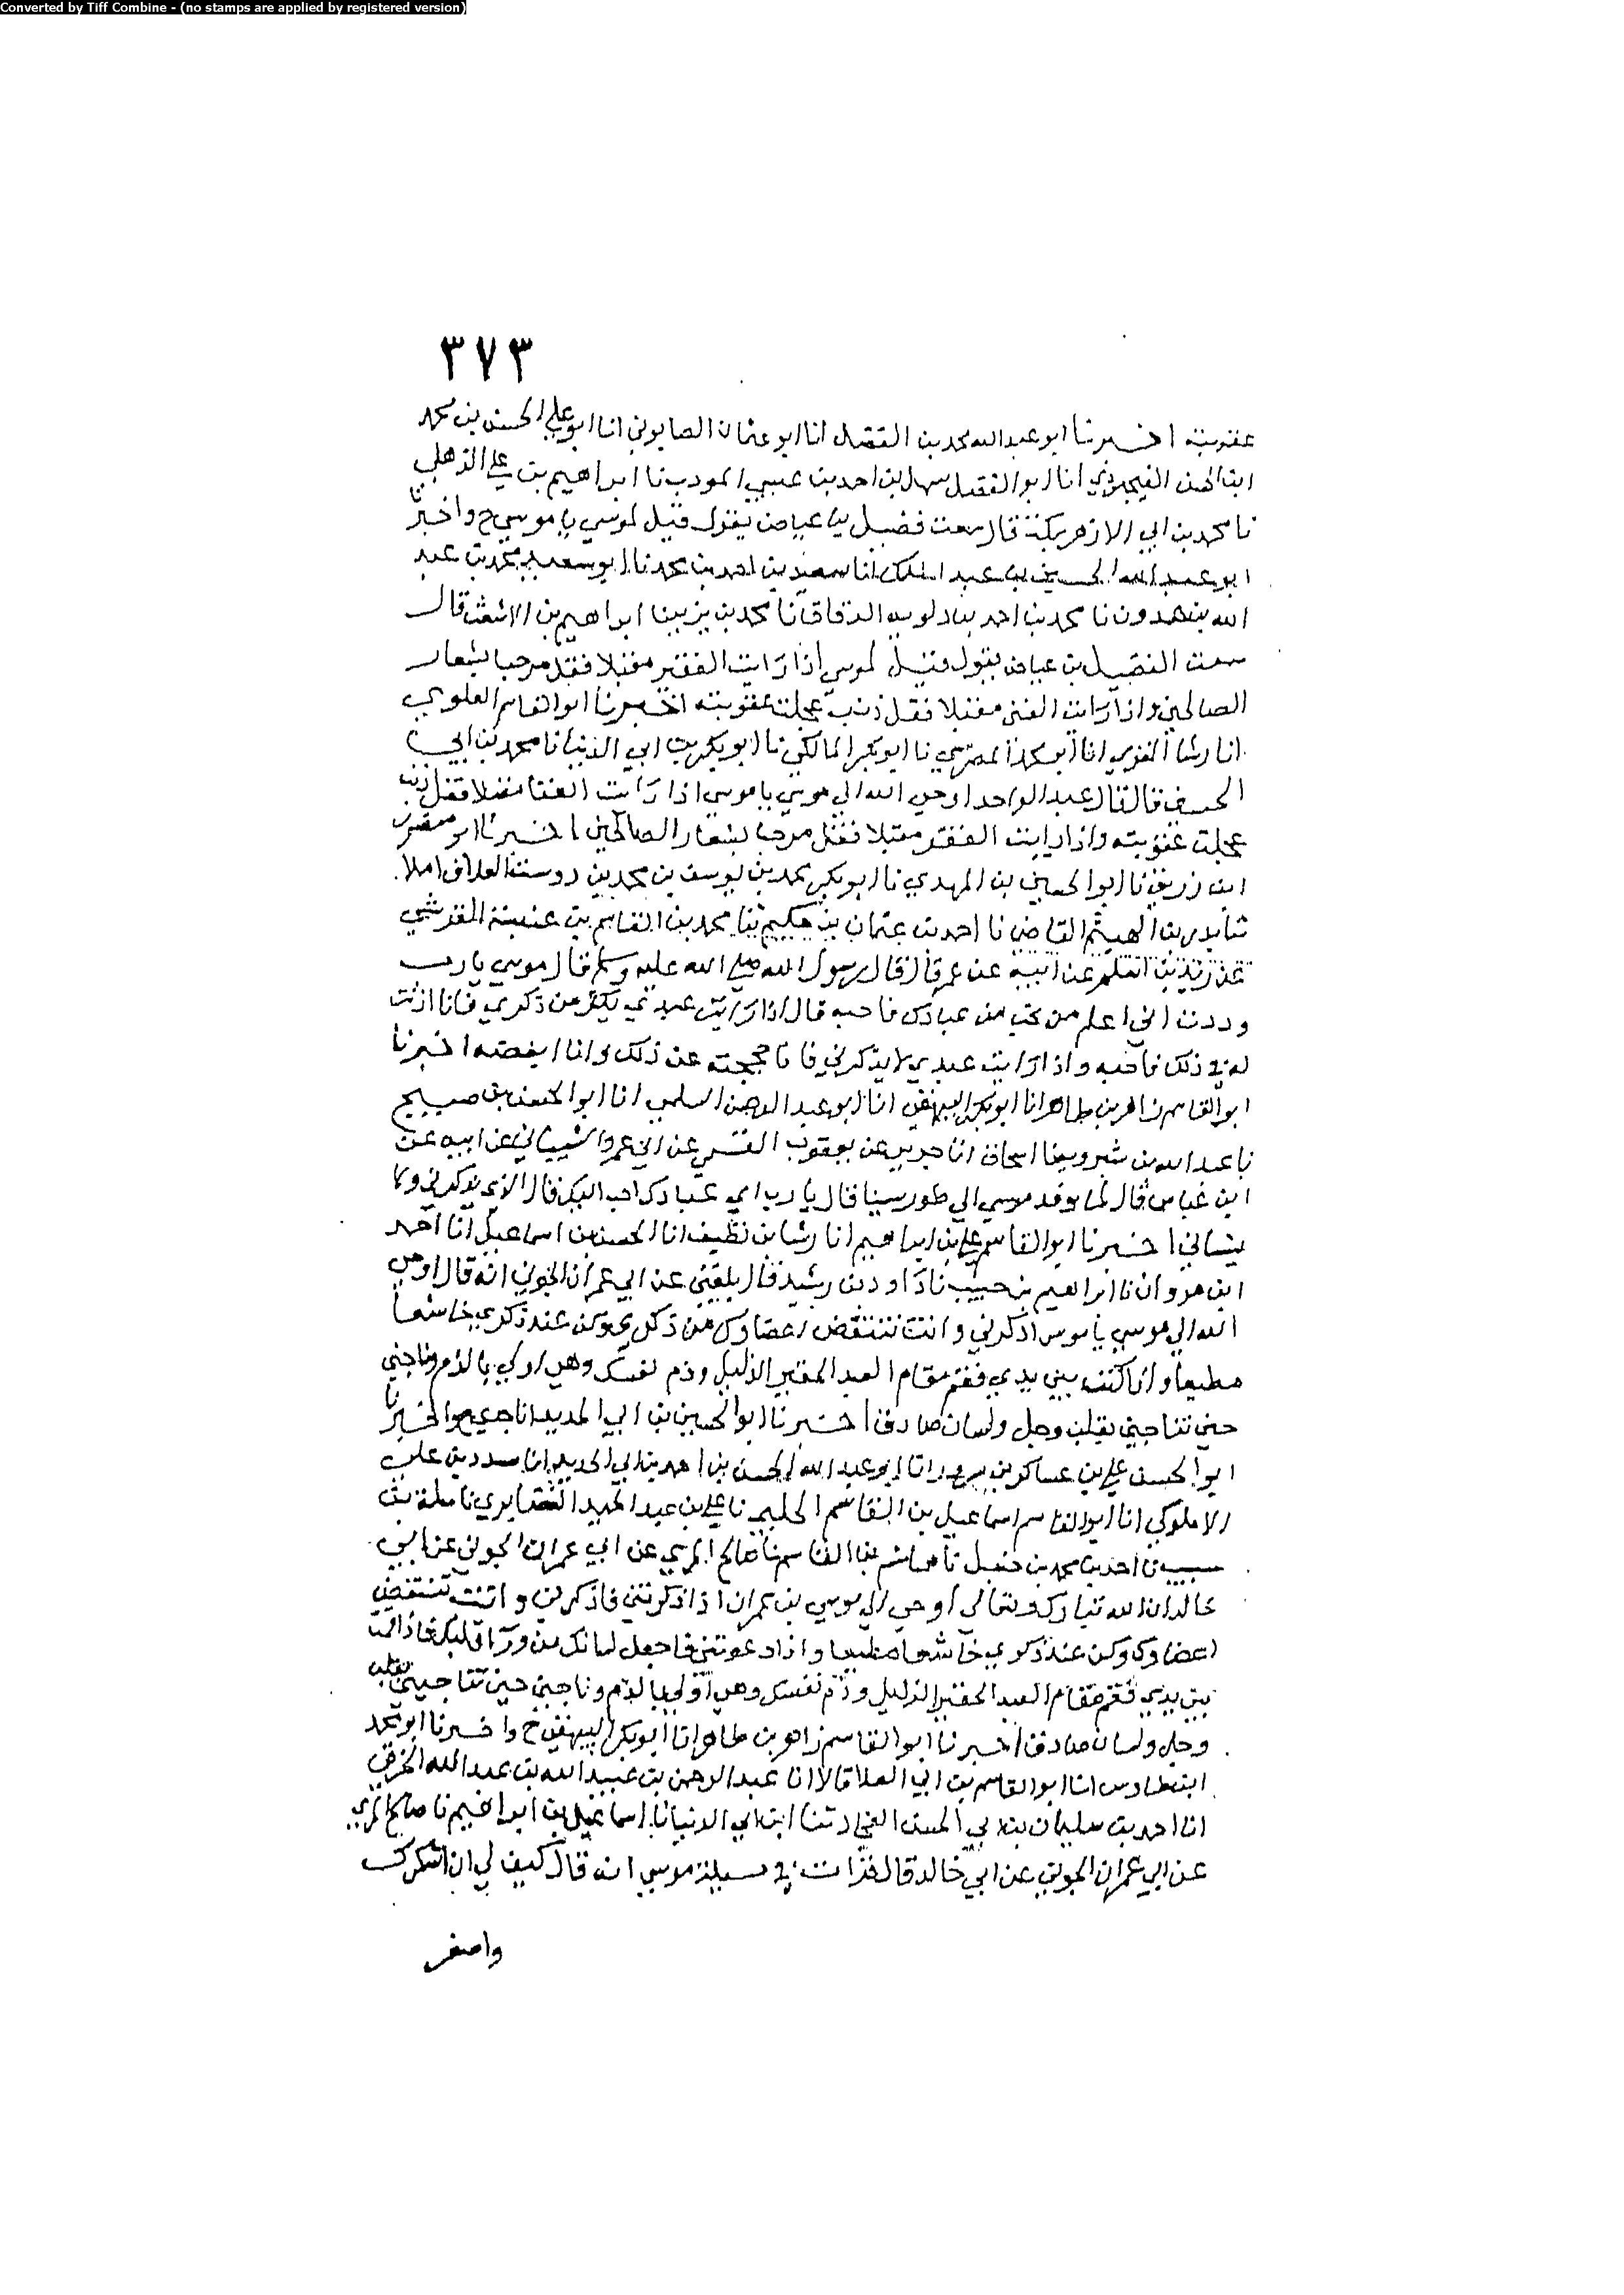 Converted by Tiff Combine - (no stamps are applied by registered version)
٣٧٣
عقوبته اخبرنا ابو عبد الله محمد بن الفضل انا ابو عثمان الصابوني انا ابو علي الحسن بن محمد
ابن الحسن انا ابو الفضل سهل بن احمد بن عيسي المودب نا ابراهيم بن علي الذهلي
نا محمد بن ابي الازهر بمكة قال سمعت فضيل بن عياض يقول قيل لموسي يا موسي ح واخبرنا
ابو عبد الله الحسين بن عبد الملك انا سعيد بن احمد بن محمد نا ابو سعيد محمد بن عبد
الله بن حمدون نا محمد بن احمد بن دلويه الدقاق نا محمد بن يزيد نا ابراهيم بن الاشعث قال
سمعت الفضيل بن عياض يقول قيل لموسي اذا رايت الفقير مقبلا فقل مرحبا بشعار
الصالحين واذا رايت الغنى مقبلا فقل ذنب عجلت عقوبته اخبرنا ابو القاسم العلوي
انا رشا المقري انا ابو محمد المصري نا ابو بكر المالكي نا ابو بكر بن ابي الدنيا نا محمد بن ابي
الحسين قال قال عبد الواحد اوحى الله الى موسي يا موسي اذا رايت الغنا مقبلا فقل ذنب
عجلت عقوبته واذا رايت الفقر مقبلا فقل مرحبا بشعار الصالحين اخبرنا ابو منصور
ابن زريق نا ابو الحسين بن المهدي نا ابو بكر محمد بن يوسف بن محمد بن دوست العلاف املا
ثنا بدر بن الهيثم القاضي نا احمد بن عثمان بن حكيم ثنا محمد بن القاسم بن عنبسة القرشي
عن زيد بن اسلم عن ابيه عن عمر قال قال رسول الله صلى الله عليه وسلم قال موسي يا رب
وددت اني اعلم من تحب من عبادك فاحبه قال اذا رايت عبدي يكثر من ذكري فانا اذنت
له في ذلك فاحبه واذا رايت عبدي لا يذكرني فانا حجبته عن ذلك وانا ابغضته اخبرنا
ابو القاسم زاهر بن طاهر انا ابو بكر البيهقي انا ابو عبد الرحمن السلمي انا ابو الحسن بن صبيح
نا عبد الله بن شيرويه نا اسحاق انا جرير عن يعقوب القمي عن ابي عمرو الشيباني عن ابيه عن
ابن عباس قال لما وفد موسي الي طور سينا قال يا رب اي عبادك احب اليك قال الذي يذكرني ولا
ينساني اخبرنا ابو القاسم علي بن ابراهيم انا رشا بن نظيف انا الحسن بن اسماعيل انا احمد
ابن مروان نا ابراهيم بن حبيب نا داود بن رشيد قال بلغني عن ابي عمران الجوني انه قال اوحى
الله الى موسي يا موسى اذكرني وانت تنتفض اعضاوك من ذكري وكن عند ذكري خاشعا
مطيعا واذا كنت بين يدي فقم مقام العبد الحقير الذليل وذم نفسك وهي اولى بالذم وناجني
حين تناجيني بقلب وجل ولسان صادق اخبرنا ابو الحسين بن ابي الحديد انا جدي ح واخبرنا
ابو الحسن علي بن عساكر بن سرور انا ابو عبد الله الحسن بن احمد بن ابي الحديد انا مسدد بن علي
الاملوكي انا ابو القاسم اسماعيل بن القاسم الحلبي نا علي بن عبد الحميد الغضايري نا سلمة بن
شبيب نا احمد بن محمد بن حنبل نا هاشم بن القاسم نا صالح المري عن ابي عمران الجوني عن ابي
خالد ان الله تبارك وتعالى اوحى الى موسي بن عمران اذا ذكرتني فاذكرني وانت تنتفض
اعضاوك وكن عند ذكري خاشعا مطيعا واذا دعوتني فاجعل لسانك من ورا قلبك فاذا قمت
بين يدي فقم مقام العبد الحقير الذليل وذم نفسك وهي اولى بالذم وناجني حين تناجيني بقلب
وجل ولسان صادق اخبرنا ابو القاسم زاهر بن طاهر انا ابو بكر البيهقي ح واخبرنا ابو محمد
ابن طاوس انا ابو القاسم بن ابي العلا قالا انا عبد الرحمن بن عبيد الله بن عبد الله الحرفي
انا احمد بن سلمان بن الحسن النجاد ثنا ابن ابي الدنيا نا اسماعيل بن ابراهيم نا صالح المري
عن ابي عمران الجوني عن ابي خالد قال قرات في مسيلة موسي انه قال كيف لي ان اشكرك
واصغر